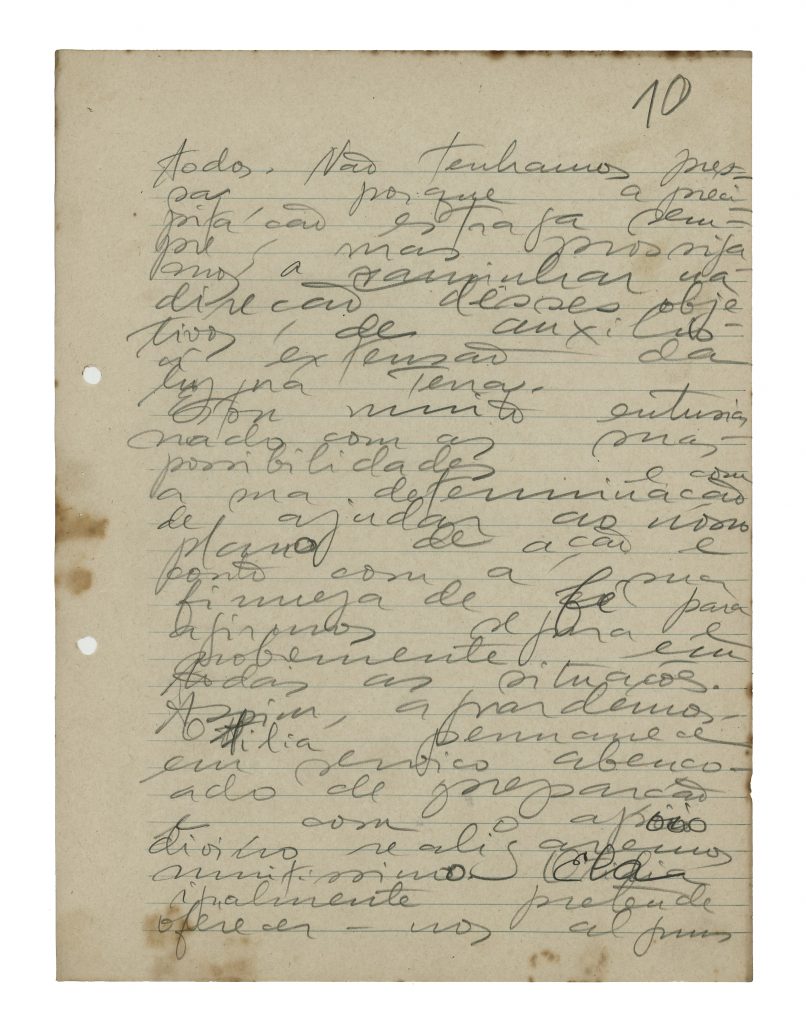 10
todos. Não tenhamos pres-
sa, porque a preci
pitação estraga sem-
pre, mas prossiga
mos a caminhar na
direcão dêsses obje
tivos, de auxilio
á extensão da
luz na Terra.
Estou muito entusias
mado com as suas
possibilidades e com
a sua determinacão
de ajudar ao nosso
plano de acão e
conto com a sua
firmeza de fé para
agirmos segura e
probemente em
todas as situacoes.
Assim, aguardemos.
permanece
em servico abenco-
ado de preparacão
e com o apoio
divino realisaremos
muitissimo.
igualmente pretende
oferecer-nos alguns